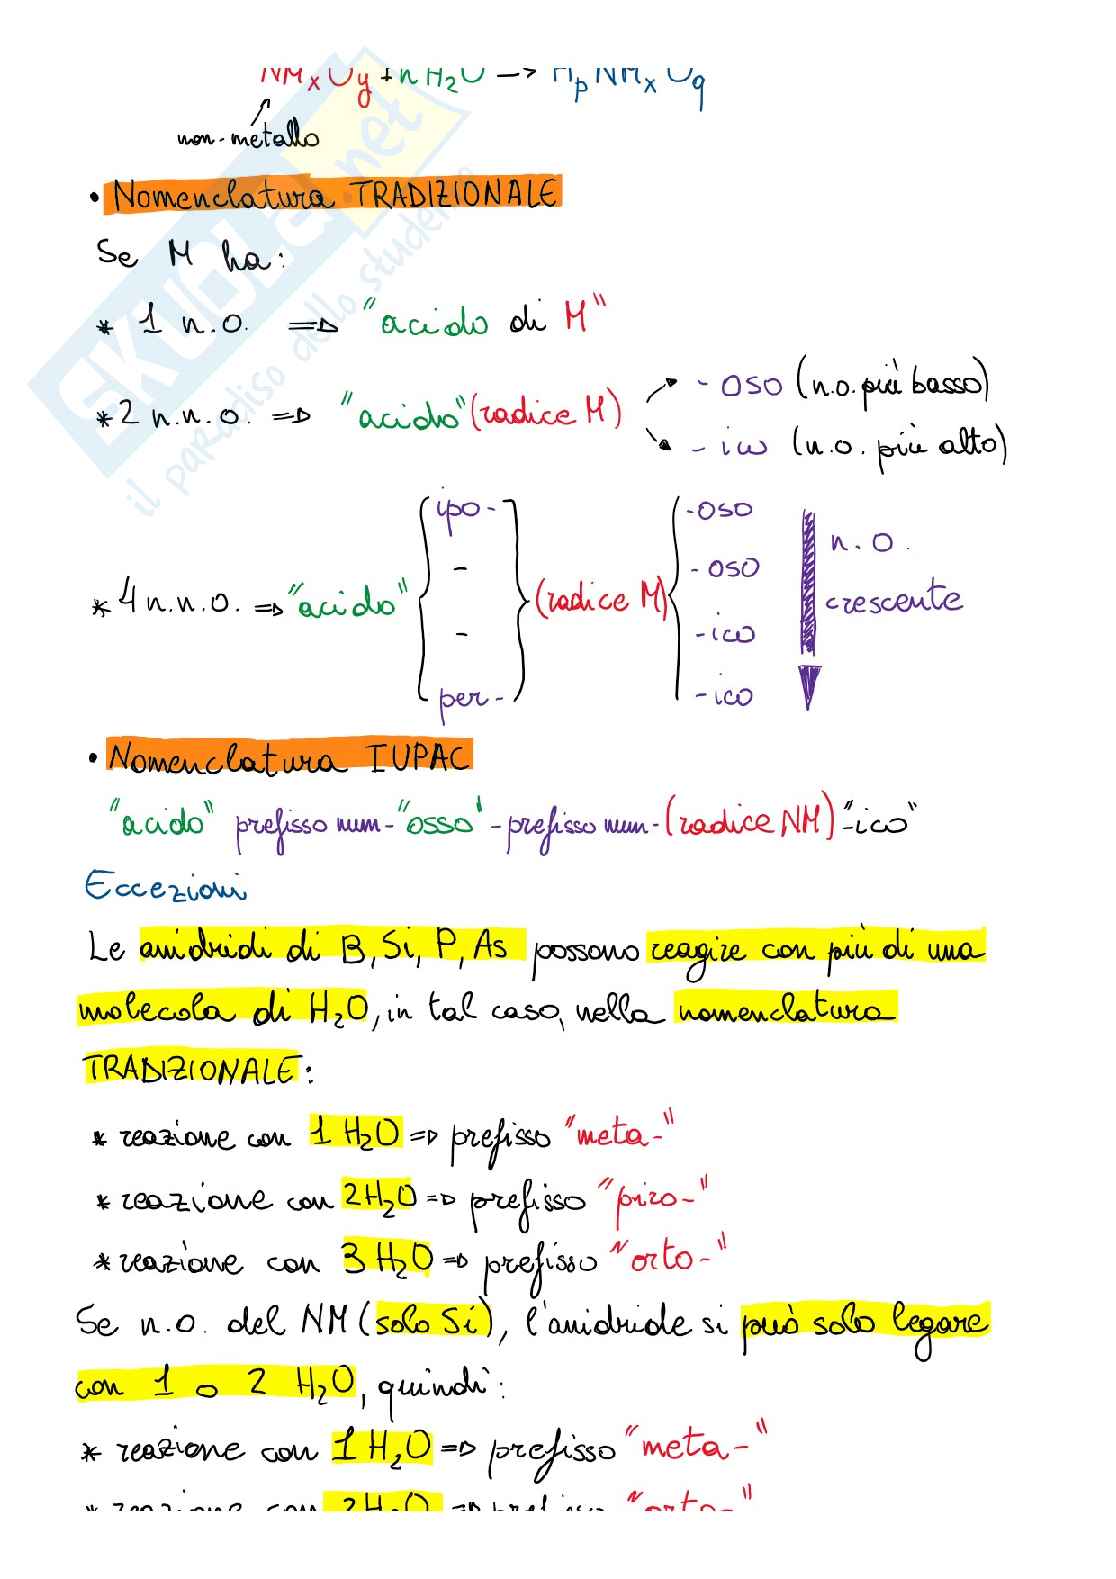 NMxOy + n H2O → HpNMxOq
non-metallo
• Nomenclatura TRADIZIONALE
Se M ha:
* 1 n.o. => "acido di M"
* 2 n.n.o. => "acido" (radice M) -oso (n.o. più basso)
-ico (n.o. più alto)
* 4 n.n.o. => "acido" { ipo- - - per- } (radice M) { -oso -oso -ico -ico n.o. crescente
• Nomenclatura IUPAC
"acido" prefisso num-"osso"-prefisso num-(radice NM)"-ico"
Eccezioni
Le anidridi di B, Si, P, As possono reagire con più di una
molecola di H2O, in tal caso, nella nomenclatura
TRADIZIONALE:
* reazione con 1 H2O => prefisso "meta-"
* reazione con 2H2O => prefisso "piro-"
* reazione con 3 H2O => prefisso "orto-"
Se n.o. del NM (solo Si), l'anidride si può solo legare
con 1 o 2 H2O, quindi:
* reazione con 1 H2O => prefisso "meta-"
* reazione con 2H2O => prefisso "orto-"
SKUOLA.net
il paradiso dello studente